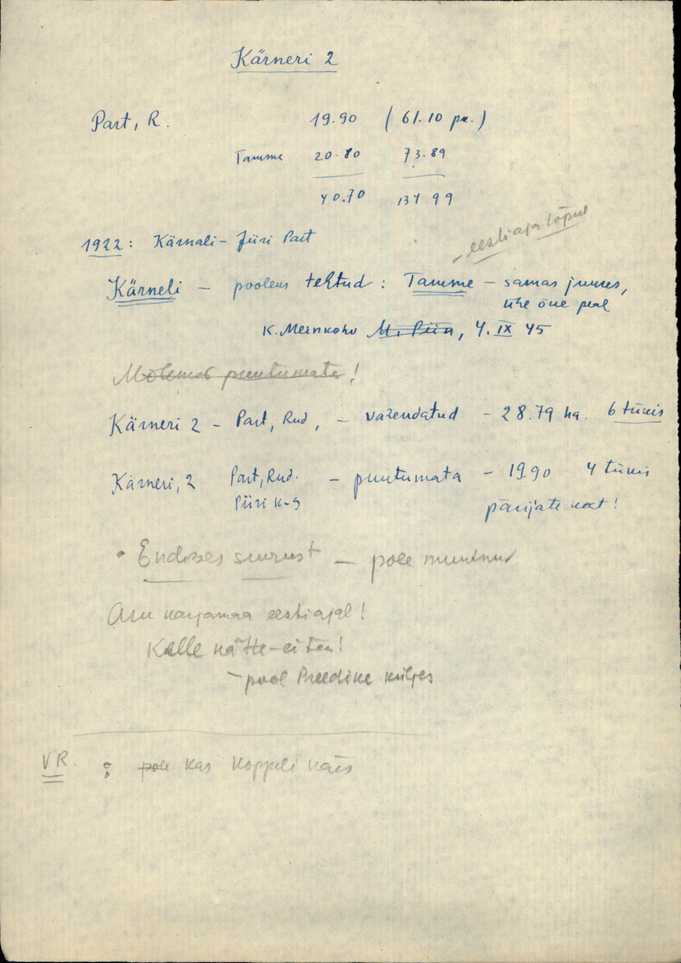 Kärneri 2
Part, R. 19.90 (61.10 pa.)
Tamme 20.80 73.89
40.70 134 99
1922: Kärnali - Jüri Part
- eestiaja lõpul
Kärneli - pooleks tehtud: Tamme - samas juures,
ühe õue peal
K. Meinkohn M. Piin, 4. IX 45
Mõlemad puutumata!
Kärneri 2 - Part, Rud, - vähendatud - 28.79 ha. 6 tükis
Kärneri, 2 Part, Rud. - puutumata - 19.90 4 tükis
Piiri k-s pärijate käest!
• Endises suurust - pole muutnud
Aru karjamaa eestiajal!
Kelle kätte - ei tea!
- pool Preedike küljes
VR. : pole kas Koppeli käes